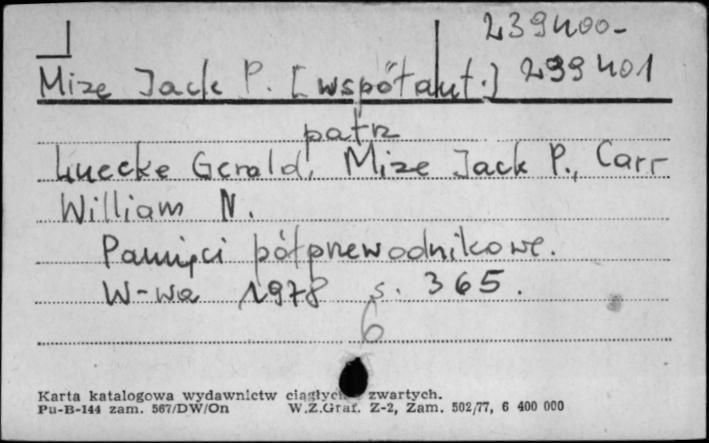 239400-
Mize Jack P. [współaut.] 239401
patrz
Luecke Gerald, Mize Jack P., Carr
William N.
Pamięci półprzewodnikowe.
W-wa 1978 s. 365.
6
Karta katalogowa wydawnictw ciągłych zwartych.
Pu-B-144 zam. 567/DW/On W.Z.Graf. Z-2, Zam. 502/77, 6 400 000